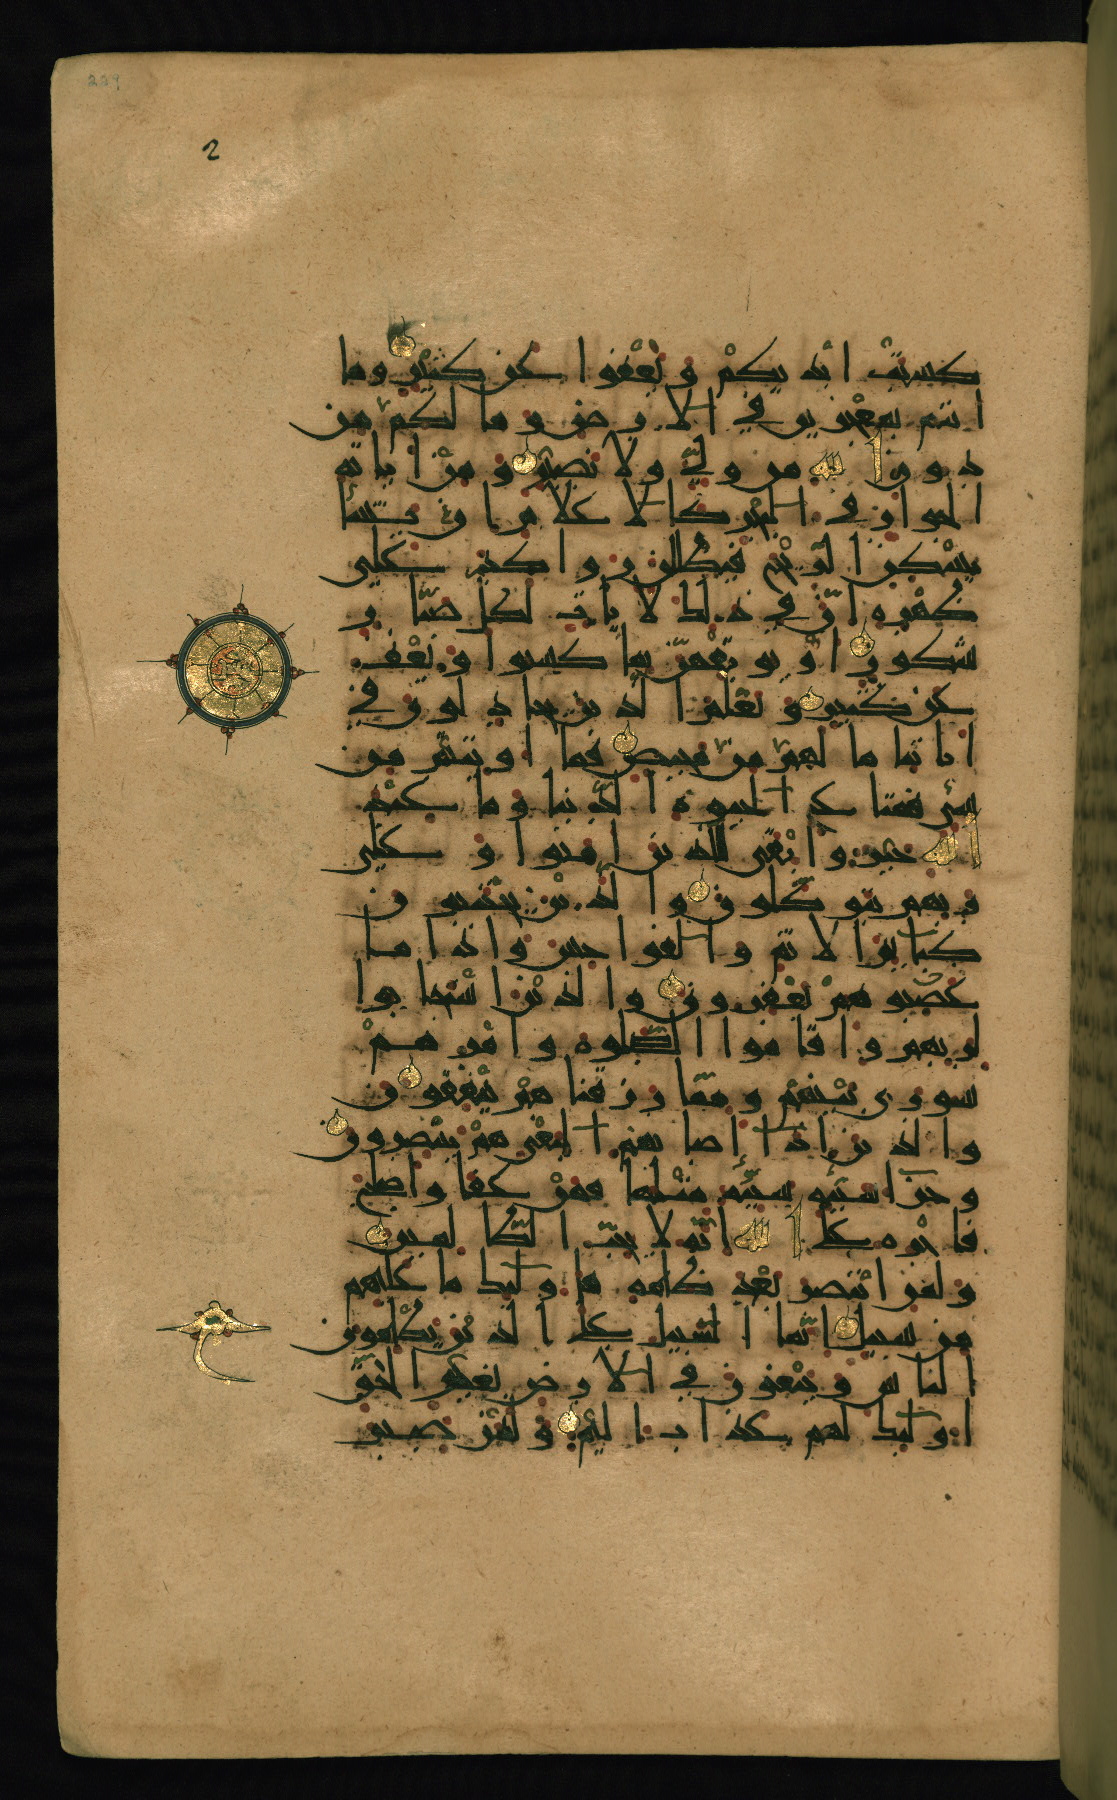 229
2
كسبت ايديكم ويعفوا عن كثير وما
انتم بمعجزين في الارض وما لكم من
دون الله من ولي ولا نصير ومن اياته
الجوار في البحر كالاعلام ان يشا
يسكن الريح فيظللن رواكد على
ظهره ان في ذلك لايات لكل صبار
شكور او يوبقهن بما كسبوا ويعف
عن كثير ويعلم الذين يجادلون في
اياتنا ما لهم من محيص فما اوتيتم من
شئ فمتاع الحيوة الدنيا وما عند
الله خير وابقى للذين امنوا وعلى
ربهم يتوكلون والذين يجتنبون
كبائر الاثم والفواحش واذا ما
غضبوا هم يغفرون والذين استجابوا
لربهم واقاموا الصلوة وامرهم
شورى بينهم ومما رزقناهم ينفقون
والذين اذا اصابهم البغى هم ينتصرون
وجزاء سيئة سيئة مثلها فمن عفا واصلح
فاجره على الله انه لا يحب الظالمين
ولمن انتصر بعد ظلمه فاولئك ما عليهم
من سبيل انما السبيل على الذين يظلمون
الناس ويبغون في الارض بغير الحق
اولئك لهم عذاب اليم ولمن صبر